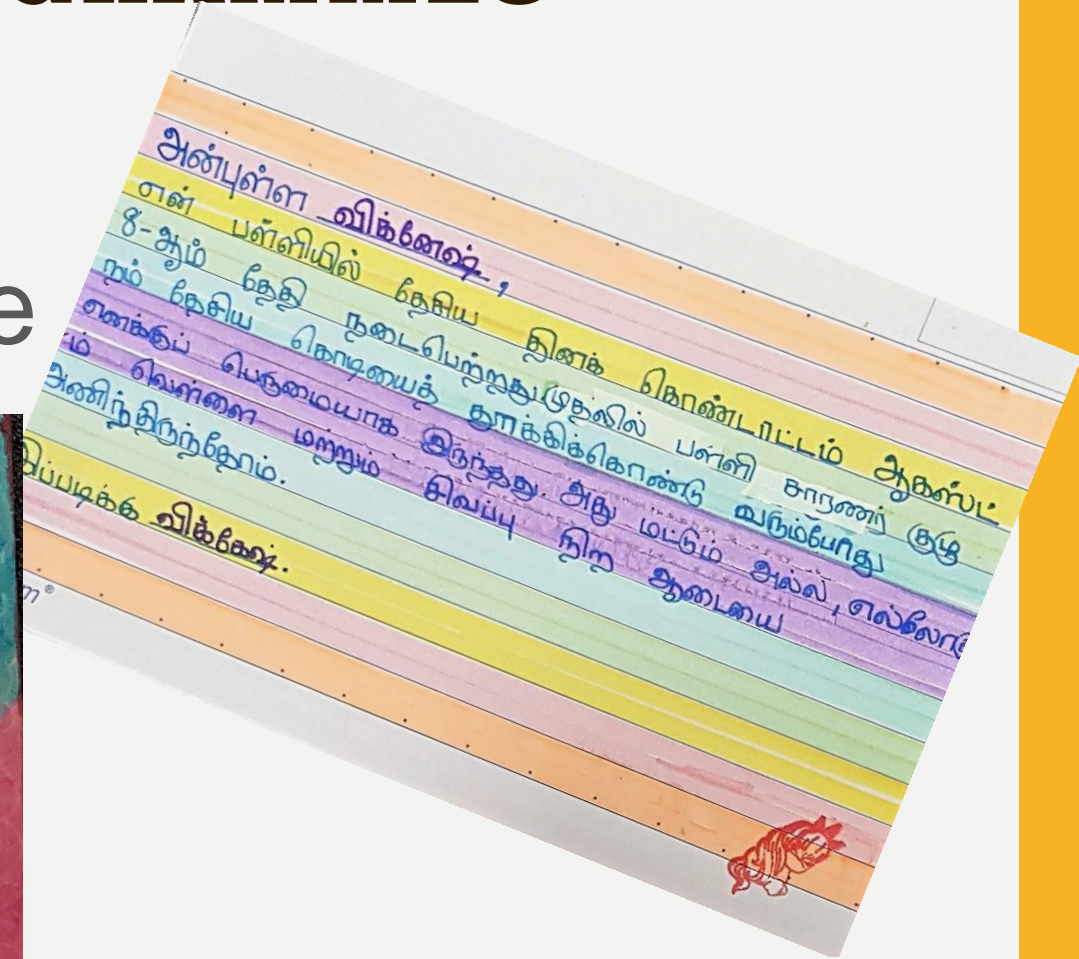 e
அன்புள்ள விக்னேஷ்,
என் பள்ளியில் தேசிய தினக் கொண்டாட்டம் ஆகஸ்ட்
8-ஆம் தேதி நடைபெற்றது முதலில் பள்ளி சாரணர் குழு
நம் தேசிய கொடியைத் தூக்கிக்கொண்டு வரும்போது
எனக்குப் பெருமையாக இருந்தது. அது மட்டும் அல்ல,
வெள்ளை மற்றும் சிவப்பு நிற ஆடையை
அணிந்திருந்தோம்.
இப்படிக்கு